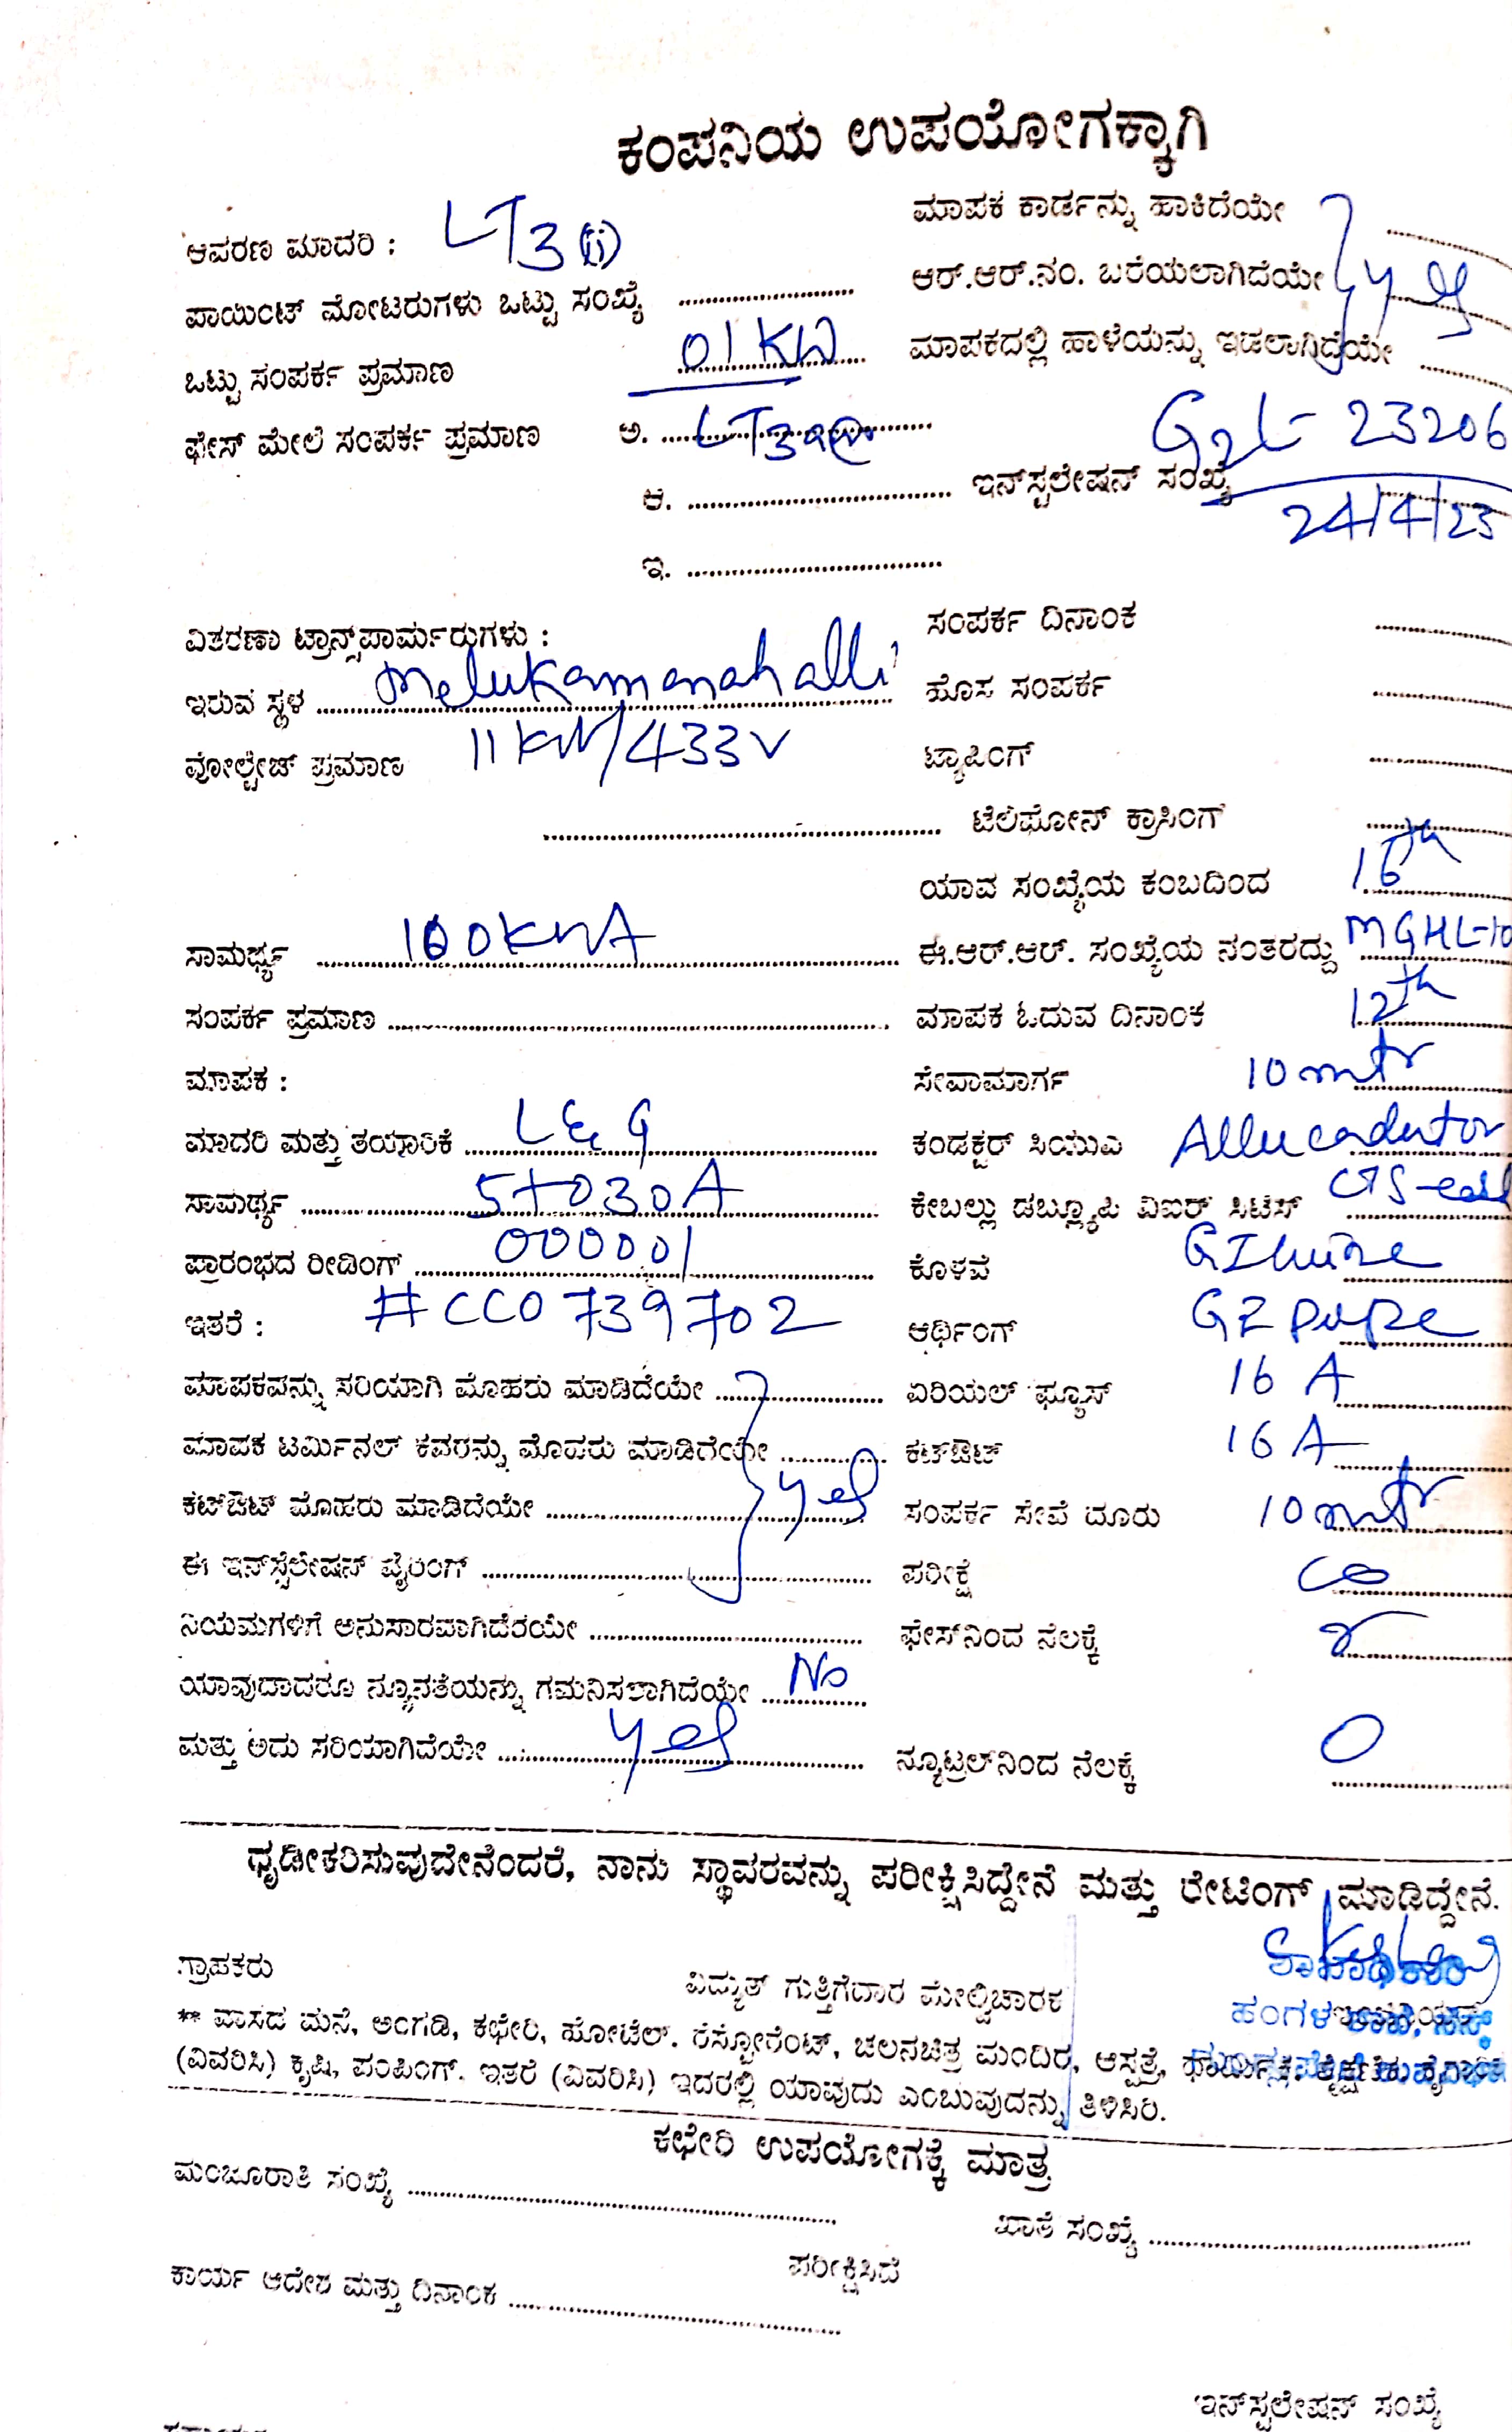 ಕಂಪನಿಯ ಉಪಯೋಗಕ್ಕಾಗಿ
ಆವರಣ ಮಾದರಿ : LT3 (i)
ಪಾಯಿಂಟ್ ಮೋಟರುಗಳು ಒಟ್ಟು ಸಂಖ್ಯೆ ....................
ಒಟ್ಟು ಸಂಪರ್ಕ ಪ್ರಮಾಣ 01 KW
ಫೇಸ್ ಮೇಲೆ ಸಂಪರ್ಕ ಪ್ರಮಾಣ ಅ. LT3
ಆ. ....................
ಇ. ....................
ಮಾಪಕ ಕಾರ್ಡನ್ನು ಹಾಕಿದೆಯೇ
ಆರ್.ಆರ್.ನಂ. ಬರೆಯಲಾಗಿದೆಯೇ yes
ಮಾಪಕದಲ್ಲಿ ಹಾಳೆಯನ್ನು ಇಡಲಾಗಿದ್ರೆಯೇ
ಇನ್‌ಸ್ಟಲೇಷನ್ ಸಂಖ್ಯೆ 23206
24/4/23
ವಿತರಣಾ ಟ್ರಾನ್ಸ್‌ಪಾರ್ಮರುಗಳು :
ಇರುವ ಸ್ಥಳ Melukamanahalli
ವೋಲ್ಟೇಜ್ ಪ್ರಮಾಣ 11KV/433V
ಸಾಮರ್ಥ್ಯ 100KVA
ಸಂಪರ್ಕ ಪ್ರಮಾಣ ....................
ಮಾಪಕ :
ಮಾದರಿ ಮತ್ತು ತಯಾರಿಕೆ L&G
ಸಾಮರ್ಥ್ಯ 5to30A
ಪ್ರಾರಂಭದ ರೀಡಿಂಗ್ 000001
ಇತರೆ : #CC0739702
ಮಾಪಕವನ್ನು ಸರಿಯಾಗಿ ಮೊಹರು ಮಾಡಿದೆಯೇ
ಮಾಪಕ ಟರ್ಮಿನಲ್ ಕವರನ್ನು ಮೊಹರು ಮಾಡಿದೆಯೇ
ಕಟ್‌ಔಟ್ ಮೊಹರು ಮಾಡಿದೆಯೇ yes
ಈ ಇನ್‌ಸ್ಟಲೇಷನ್ ವೈರಿಂಗ್
ನಿಯಮಗಳಿಗೆ ಅನುಸಾರವಾಗಿದೆರಯೇ ....................
ಯಾವುದಾದರೂ ನ್ಯೂನತೆಯನ್ನು ಗಮನಿಸಲಾಗಿದೆಯೇ No
ಮತ್ತು ಅದು ಸರಿಯಾಗಿದೆಯೇ yes
ಸಂಪರ್ಕ ದಿನಾಂಕ
ಹೊಸ ಸಂಪರ್ಕ
ಟ್ಯಾಪಿಂಗ್
ಟೆಲಿಫೋನ್ ಕ್ರಾಸಿಂಗ್
ಯಾವ ಸಂಖ್ಯೆಯ ಕಂಬದಿಂದ 16th
ಈ.ಆರ್.ಆರ್. ಸಂಖ್ಯೆಯ ನಂತರದ್ದು MGHL-10
ಮಾಪಕ ಓದುವ ದಿನಾಂಕ 12th
ಸೇವಾಮಾರ್ಗ 10mtr
ಕಂಡಕ್ಟರ್ ಸಿಯುಎ
ಕೇಬಲ್ಲು ಡಬ್ಲ್ಯೂಪಿ ವಿಐರ್ ಸಿಟಿಸ್
ಕೊಳವೆ GI wire
ಆರ್ಥಿಂಗ್ GI pipe
ಏರಿಯಲ್ ಫ್ಯೂಸ್ 16 A
ಕಟ್‌ಔಟ್ 16 A
ಸಂಪರ್ಕ ಸೇವೆ ದೂರು 10mtr
ಪರೀಕ್ಷೆ
ಫೇಸ್‌ನಿಂದ ನೆಲಕ್ಕೆ
ನ್ಯೂಟ್ರಲ್‌ನಿಂದ ನೆಲಕ್ಕೆ 0
ಧೃಡೀಕರಿಸುವುದೇನೆಂದರೆ, ನಾನು ಸ್ಥಾವರವನ್ನು ಪರೀಕ್ಷಿಸಿದ್ದೇನೆ ಮತ್ತು ರೇಟಿಂಗ್ ಮಾಡಿದ್ದೇನೆ.
ಗ್ರಾಪಕರು ವಿದ್ಯುತ್ ಗುತ್ತಿಗೆದಾರ ಮೇಲ್ವಿಚಾರಕ
ಶಾಖಾಧಿಕಾರಿ
ಹಂಗಳ ಶಾಖೆ,
** ವಾಸದ ಮನೆ, ಅಂಗಡಿ, ಕಛೇರಿ, ಹೋಟೆಲ್. ರೆಸ್ಟೋರೆಂಟ್, ಚಲನಚಿತ್ರ ಮಂದಿರ, ಆಸ್ಪತ್ರೆ,
(ವಿವರಿಸಿ) ಕೃಷಿ, ಪಂಪಿಂಗ್. ಇತರೆ (ವಿವರಿಸಿ) ಇದರಲ್ಲಿ ಯಾವುದು ಎಂಬುವುದನ್ನು ತಿಳಿಸಿರಿ.
ಕಛೇರಿ ಉಪಯೋಗಕ್ಕೆ ಮಾತ್ರ
ಮಂಜೂರಾತಿ ಸಂಖ್ಯೆ .................... ಖಾತೆ ಸಂಖ್ಯೆ ....................
ಪರೀಕ್ಷಿಸಿದೆ
ಕಾರ್ಯ ಆದೇಶ ಮತ್ತು ದಿನಾಂಕ ....................
ಇನ್‌ಸ್ಟಲೇಷನ್ ಸಂಖ್ಯೆ